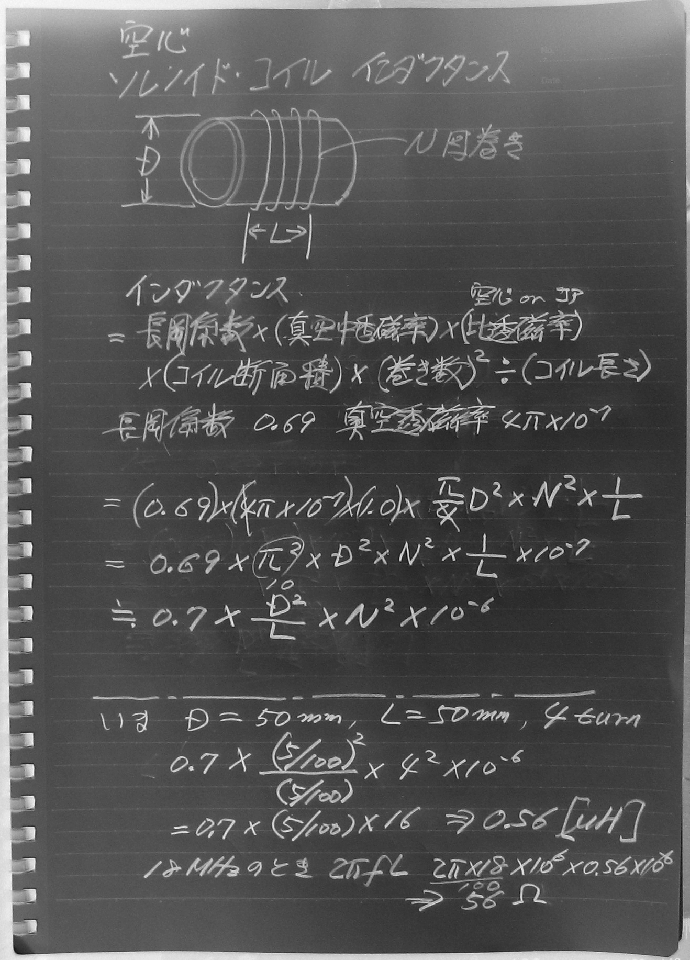 空心
ソレノイド・コイル インダクタンス
D
N回巻き
L
インダクタンス
空心 or エア
= 長岡係数×(真空中透磁率)×(比透磁率)
×(コイル断面積)×(巻き数)²÷(コイル長さ)
長岡係数 0.69 真空透磁率 4π×10⁻⁷
= (0.69)×(4π×10⁻⁷)×(1.0)× π/4 D² × N² × 1/L
= 0.69 × π² × D² × N² × 1/L × 10⁻⁷
10
≒ 0.7 × D²/L × N² × 10⁻⁶
いま D = 50mm, L = 50mm, 4 turn
0.7 × (5/100)²/(5/100) × 4² × 10⁻⁶
= 0.7 × (5/100) × 16 ⇒ 0.56 [μH]
18MHzのとき 2πfL 2π×18×10⁶×0.56×10⁻⁶
100
⇒ 56 Ω